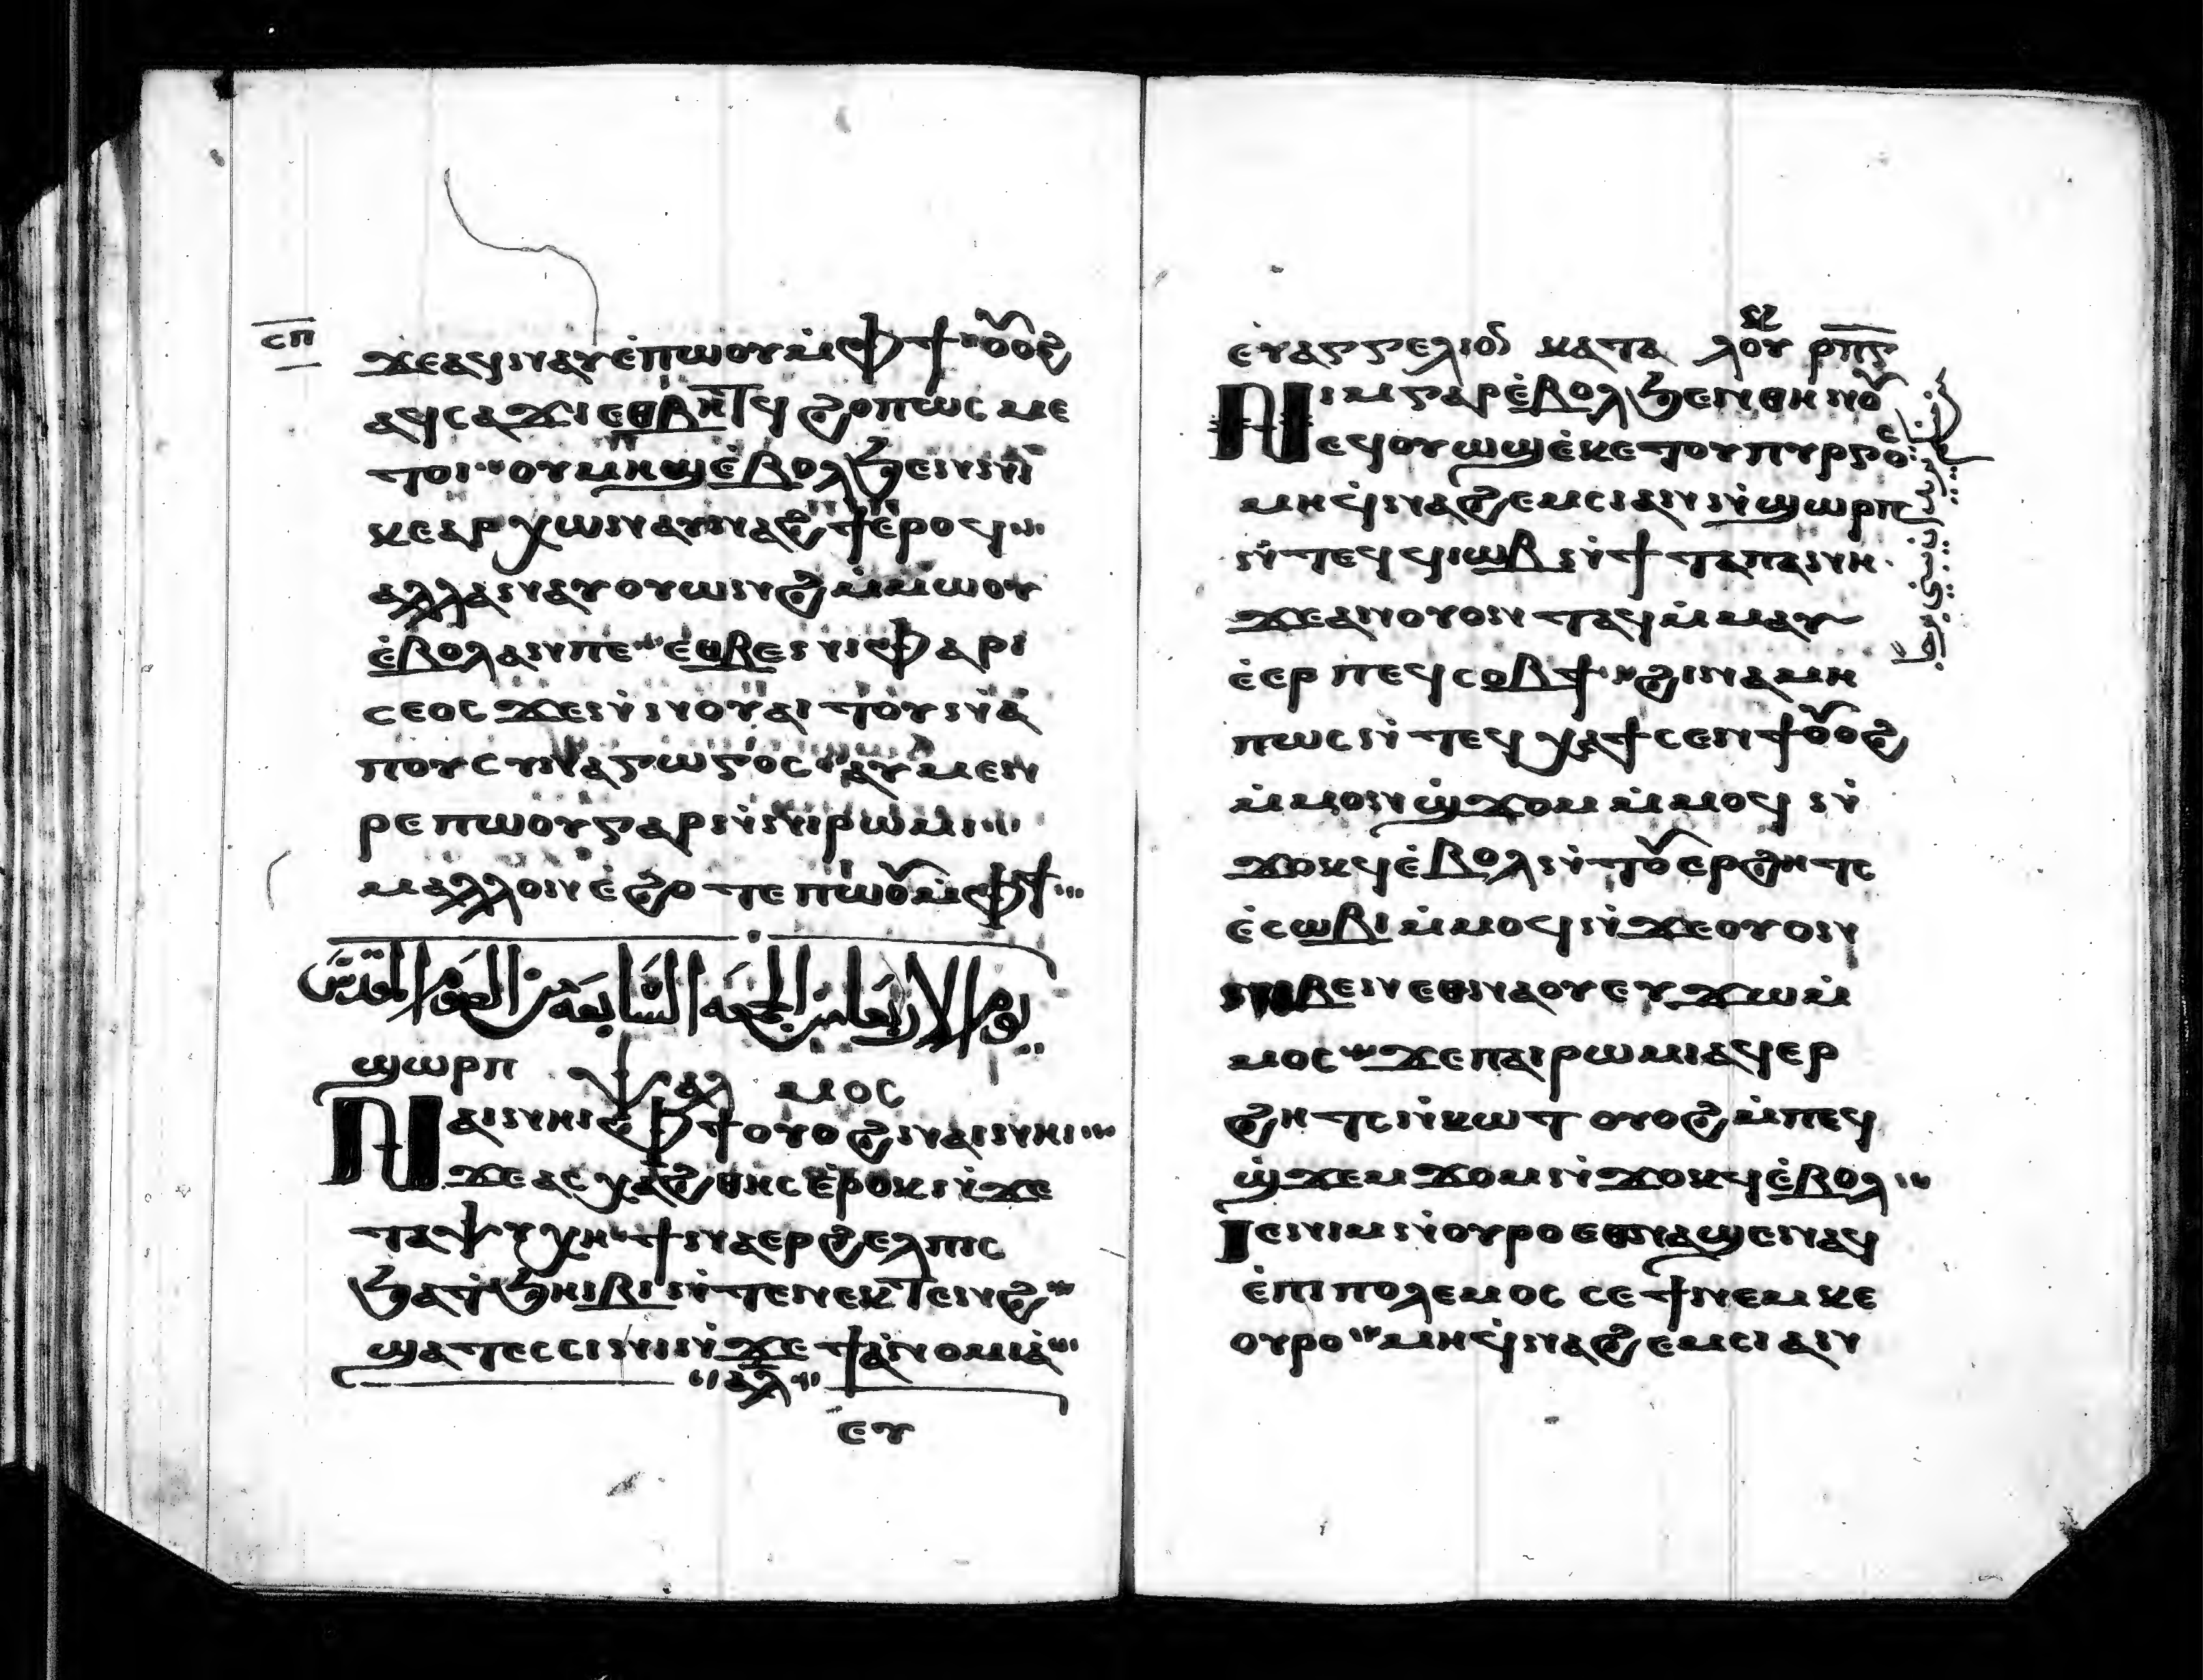 ⲥⲡ
ϫⲉⲁϥⲛⲁⲩⲉ̀ⲡⲱⲟⲩⲙ̀ⲫϯ ⲟⲩⲟϩ
ⲁϥⲥⲁϫⲓⲉⲑⲃⲏⲧϥ ϩⲟⲡⲱⲥ ⲙⲉ
ⲧⲟⲓ ⲟⲩⲙⲏϣⲉ̀ⲃⲟⲗϧⲉⲛⲛⲓ
ⲕⲉⲁⲣⲭⲱⲛⲁⲩⲛⲁϩϯⲉ̀ⲣⲟϥ
ⲁⲗⲗⲁⲛⲁⲩⲟⲩⲱⲛϩⲙ̀ⲙⲱⲟⲩ
ⲉ̀ⲃⲟⲗⲁⲛⲡⲉ ⲉⲑⲃⲉⲛⲓⲫⲁⲣⲓ
ⲥⲉⲟⲥ ϫⲉⲛ̀ⲛⲟⲩⲁⲓⲧⲟⲩⲛⲁ̀
ⲡⲟⲩⲥⲩⲛⲁⲅⲱⲅⲟⲥ ⲁⲩⲙⲉⲛ
ⲣⲉ ⲡⲱⲟⲩⲅⲁⲣⲛ̀ⲛⲓⲣⲱⲙⲓ
ⲙⲁⲗⲗⲟⲛⲉ̀ϩⲟⲧⲉ ⲡⲱⲟⲩⲙ̀ⲫϯ
يوم الاربعا من الجمعه السابعه من الصوم المقدس
ϣⲱⲣⲡ ⲯⲁⲗ ⲙⲟⲥ
ⲛⲁⲓⲛⲏⲓⲫϯⲟⲩⲟϩⲛⲁⲓⲛⲏⲓ
ϫⲉⲁⲥⲭⲁϩⲑⲏⲥⲉ̀ⲣⲟⲕⲛ̀ϫⲉ
ⲧⲁⲯⲩⲭⲏ ϯⲛⲁⲉⲣϩⲉⲗⲡⲓⲥ
ϧⲁⲧ̀ϧⲏⲓⲃⲓⲛ̀ⲧⲉⲛⲉⲕⲧⲉⲛϩ
ϣⲁⲧⲉⲥⲥⲓⲛⲓⲛ̀ϫⲉ ϯⲁ̀ⲛⲟⲙⲓⲁ̀
ⲁⲗ
ⲉⲩ
ⲉⲩⲁⲅⲅⲉⲗⲓⲟⲛ ⲕⲁⲧⲁ ⲗⲟⲩ ⲣⲡⲋ
ⲛⲓⲙⲅⲁⲣⲉ̀ⲃⲟⲗϧⲉⲛⲑⲏⲛⲟⲩ
ⲉϥⲟⲩⲱϣⲉ̀ⲕⲉⲧⲟⲩⲡⲩⲣⲅⲟⲥ
ⲙⲏϥ̀ⲛⲁϩⲉⲙⲥⲓⲁⲛⲛ̀ϣⲱⲣⲡ
ⲛ̀ⲧⲉϥϥⲓⲱⲃⲛ̀ϯ ⲧⲁⲡⲁⲛⲏ
ϫⲉⲁⲛⲟⲩⲟⲛ ⲧⲁϥⲙ̀ⲙⲁⲩ
ⲉ̀ⲉⲣ ⲡⲉϥⲥⲟⲃϯ ϩⲓⲛⲁⲙⲏ
ⲡⲱⲥⲛ̀ⲧⲉϥ ⲭⲁϯⲥⲉⲛϯⲟⲩⲟϩ
ⲙ̀ⲙⲟⲛϣ̀ϫⲟⲙ ⲙ̀ⲙⲟϥ ⲛ̀
ϫⲟⲕϥⲉ̀ⲃⲟⲗⲛ̀ⲧⲟⲩⲉⲣϩⲏⲧⲥ
ⲉ̀ⲥⲱⲃⲓⲙ̀ⲙⲟϥⲛ̀ϫⲉⲟⲩⲟⲛ
ⲛⲓⲃⲉⲛⲉⲑⲛⲁⲟⲩⲉⲩϫⲱⲙ̀
ⲙⲟⲥ ϫⲉⲡⲁⲓⲣⲱⲙⲓⲁϥⲉⲣ
ϩⲏⲧⲥⲛ̀ⲕⲱⲧ ⲟⲩⲟϩⲙ̀ⲡⲉϥ
ϣ̀ϫⲉⲙϫⲟⲙⲛ̀ϫⲟⲕϥⲉ̀ⲃⲟⲗ
ⲓⲉⲛⲓⲙⲛ̀ⲟⲩⲣⲟⲉⲑⲛⲁϣⲉⲛⲁϥ
ⲉ̀ⲡⲓⲡⲟⲗⲉⲙⲟⲥ ⲥⲉϯⲛⲉⲙⲕⲉ
ⲟⲩⲣⲟ ⲙⲏϥ̀ⲛⲁϩⲉⲙⲥⲓⲁⲛ